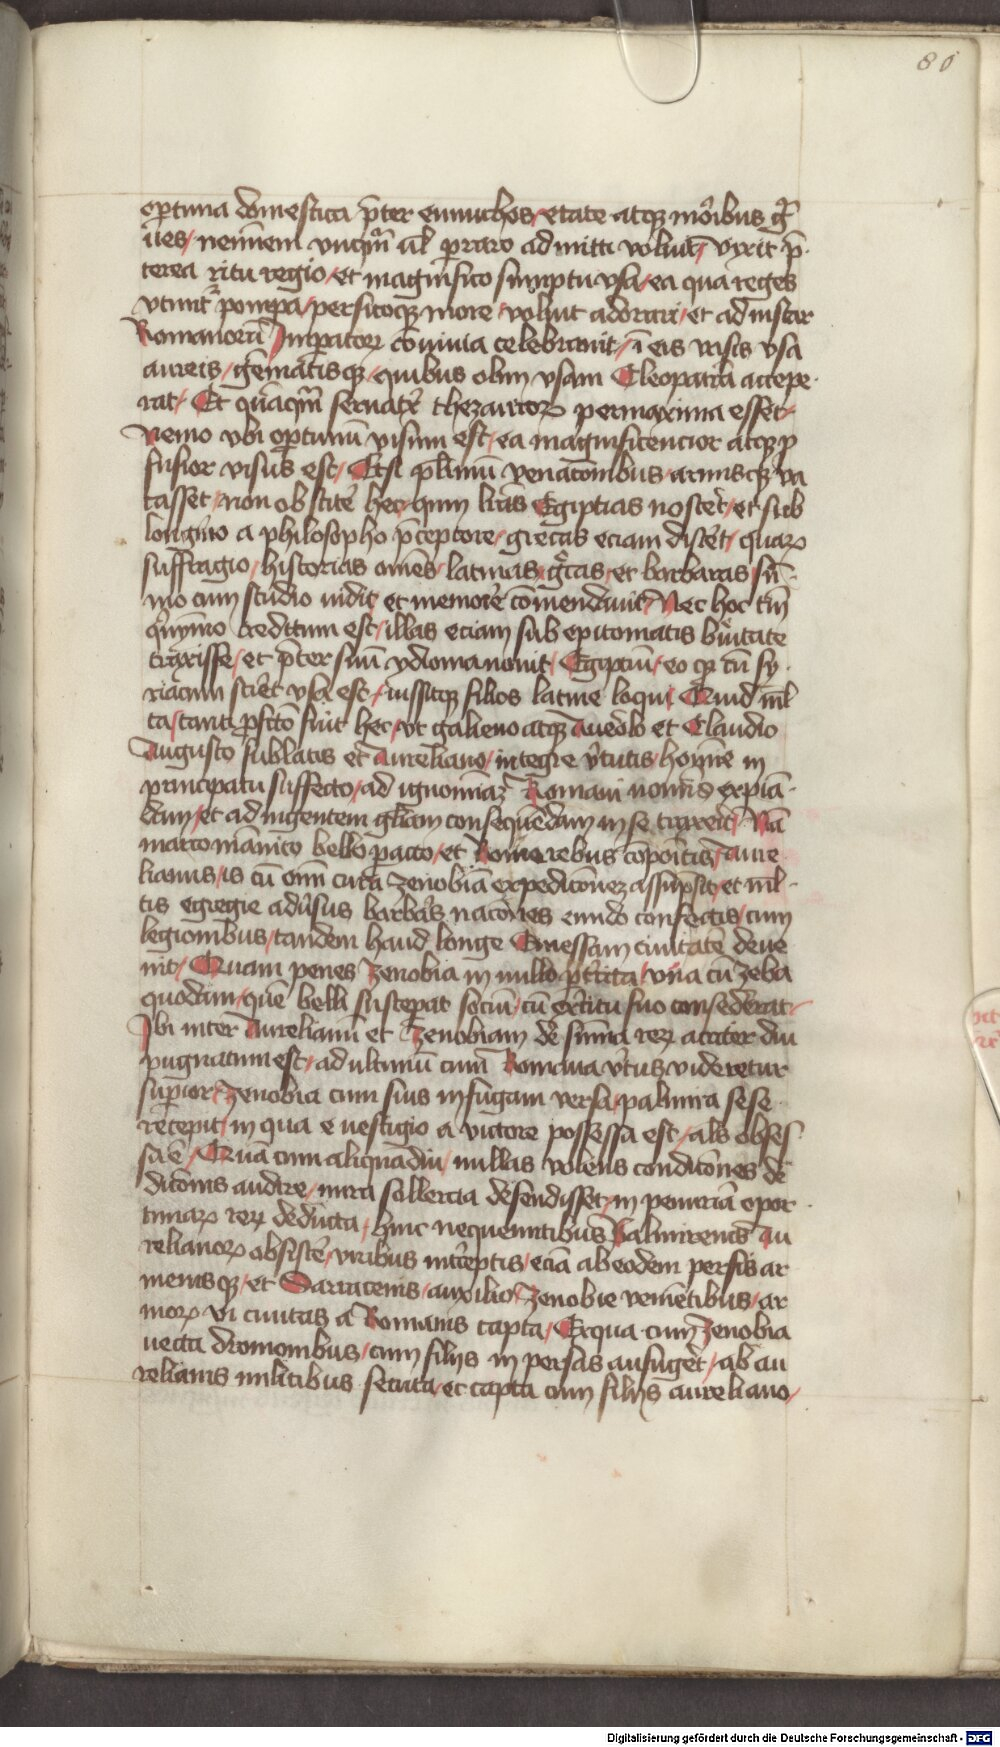 80
oportuna domestica p̄ter eunuchos / etate atqꝫ moribus gͣ-
ues / neminem vnqͣm ul perraro admitti voluit / vixit p̄-
terea ritu regio / et magnifico sumptu vsa / ea qua reges
vtunt᷑ pompa / persicoqꝫ more / voluit adorari / et ad instar
Romanorū Imperatoꝝ conuiuia celebrauit / ī eis vasis vsa
aureis / gēmatisqꝫ / quibus olim vsam Cleopatrā accepe-
rat / Et quāqͣm seruatrix thezauroꝝ permaxima esset /
Nemo vbi oportunū visum est / ea magnificencior atqꝫ p̄
fusior visus est / Etsi plͥmū venacōnibus / armisqꝫ va
casset / non obstitere hec quin lrās Egiptias nosceret / et sub
longino a philosopho p̄ceptore / grecas eciam disceret / quaꝝ
suffragio / historias omēs / latinas / gͣcas / et barbaras sū-
mo cum studio vidit et memorie cōmendauit / Nec hoc tm̄
quīymmo creditum est / illas eciam sub epitomatis breuitate
traxisse / et p̄ter suū ydioma nouit / Egiptiū / eo qꝫ cū sy-
riacum sciret vsa est / iussitqꝫ filios latine loqui / Quid ml̄
ta / tanti profcō fūit hec / vt galieno atqꝫ Aueolo et Claudio
Augusto sublatis et Aureliano / integre v̄tutis / homine in
principatu suffecto / ad ignominiaꝫ Romani nominis expiā-
dam / et ad ingentem glīam consequendam in se traxerit / Nā
marcomānico bello peracto / et Rome rebus cōpositis / Aure-
lianus / is cū omī cura zenobiā expedicōneꝫ assūpsit / et ml̄-
tis egregie aduersus barbas nacōnes eundo confectis / cum
legionibus / tandem haud longe Emessam ciuitatē deue
nit / Quam penes zenobia in nullo perterrita / vna cū zeba
quodam / quē belli susceperat sociū / cū exercitu suo consederat /
Ibi inter Aurelianū et zenobiam de sūma reꝝ acriter diu
pugnatum est / ad ultimū cum Romana v̄tus videretur
superior / Zenobia cum suis in fugam versa / palmira sese
recepit / in qua e uestigio a victore possessa est / als obses
sa ē / Quā cum aliquādiu / nullas volens condicōnes de
dicōnis audire / mira sollercia defendisset / in penuriā opor-
tunaꝝ reꝝ deducta / hinc nequeuntibus Palmirenis Au
relianoꝝ obsistere viribus interceptis / eciā ab eodem persis ar
menisqꝫ / et Sarracenis / auxilio Zenobie venientibus / ar
moꝝ vi ciuitas a Romanis capta / Ex qua cum Zenobia
uecta dromonibus / cum filijs in persas aufugeret / ab au
relianis militibus secuta / et capta cum filijs aureliano /
Digitalisierung gefördert durch die Deutsche Forschungsgemeinschaft - DFG